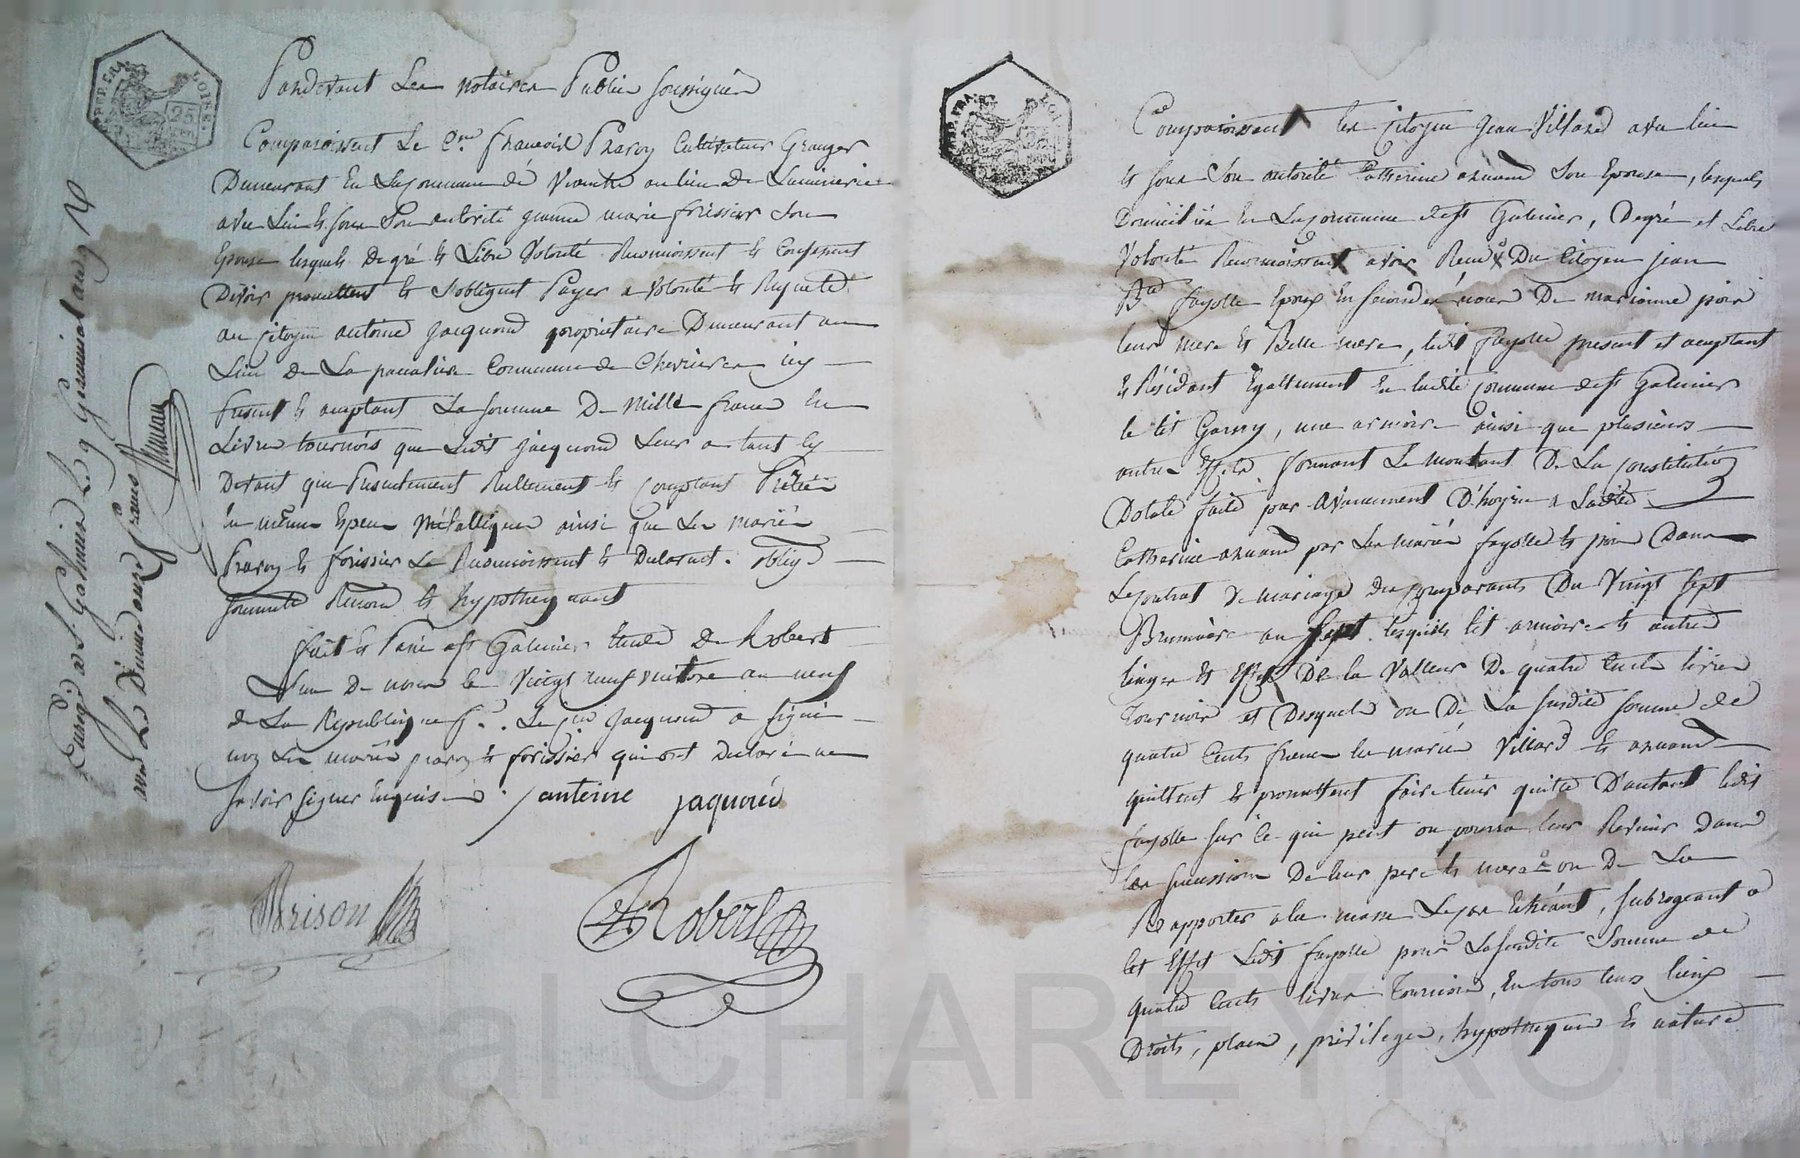 Pardevant Les notaires Publics soussignés
Comparoissent Le Cen. françois Pravoz Cultivateur Granger
Demeurant En La Commune de au lieu de Liminerie
avec Lui & sous Son autorité jeanne marie forissier Son
Epouse lesquels De gré & Libre Volonté Reconnoissent & Confessent
Devoir promettent & s'obligent Payer a Volonté & Requete
au citoyen antoine jacquemond propriétaire Demeurant au
Lieu De La Commune de Chevrieres icy
Present & acceptant La somme De Mille francs En
Livres tournois que Ledit jacquemond Leur a tant cy
Devant que Presentement Reellement & Comptant Prêtés
En même Especes Métalliques ainsi que Les mariés
Pravoz & forissier Le Reconnoissent & Declarent. oblig
soumets Renonce & hypothequant
fait & Passé a St Galmier Etude De Robert
L'un De nous le Vingt neuf ventose an neuf
de La Republique f. Le Cen jacquemond a signé
non Les mariés pravoz & forissier qui ont Declaré ne
Savoir signer Enquis antoine jaquoud
Brison
Robert
25
REP. FRA
Enregé a St Galmier Le 9 germinal an 9 R
avec Le Dixieme onze francs
Comparoissent les Citoyen Jean Villard avec lui
& sous Son autorité Catherine arnaud Son Epouse, lesquels
Domiciliés En La Commune de St Galmier, De gré et Libre
Volonté Reconnoissent avoir Reçu Du Citoyen jean
Bte fayolle Epoux En secondes noces De marianne
leur mere & Belle mere, ledit fayolle present et acceptant
& Résidant Egallement En ladite Commune de St Galmier
le lit Garny, une armoire ainsi que plusieurs
autres Effets formant Le montant De La Constitution
Dotale faite par avancement D'hoyrie a Ladite
Catherine arnaud par Les mariés fayolle & Dans
Le Contrat De mariage Des Comparants Du Vingt Sept
Brumaire an Sept lesquels lit armoire & autres
linges & Effets De la Valleur De quatre Cents livres
Tournois et Desquels ou De La susdite somme de
quatre Cents francs les mariés Villard & arnaud
quittent & promettent faire tenir quitte D'autant ledit
fayolle sur ce qui peut ou pourra leur Revenir Dans
les successions De leur pere & mere ou De Les
Rapporter a la masse Le cas Echéant, subrogeant a
Cet Effet Ledit fayolle pour La susdite Somme de
quatre Cents livres Tournois, En tous leurs lieux
Droits, places, privileges, hypotheques & nature
Pascal CHAREYRON